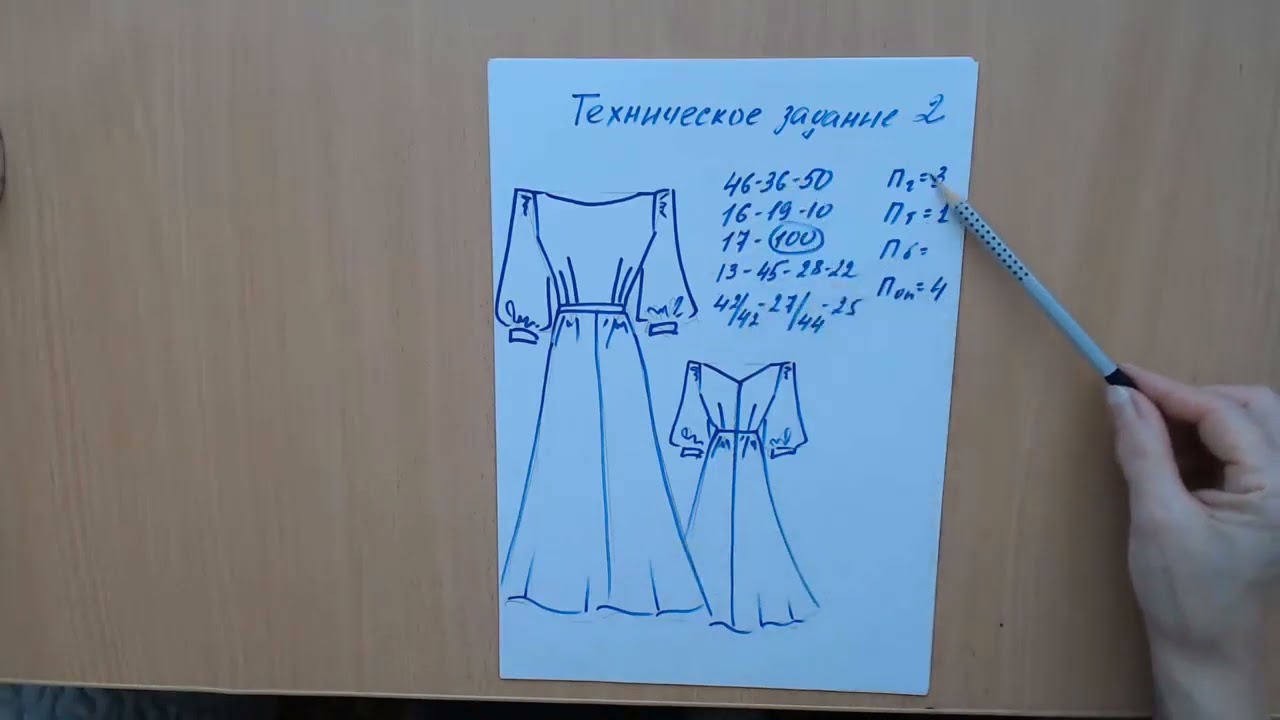 Техническое задание 2
46-36-50
16-19-10
17-100
13-45-28-22
42/42-27/44-25
Пг=3
Пт=1
Пб=
Поп=4